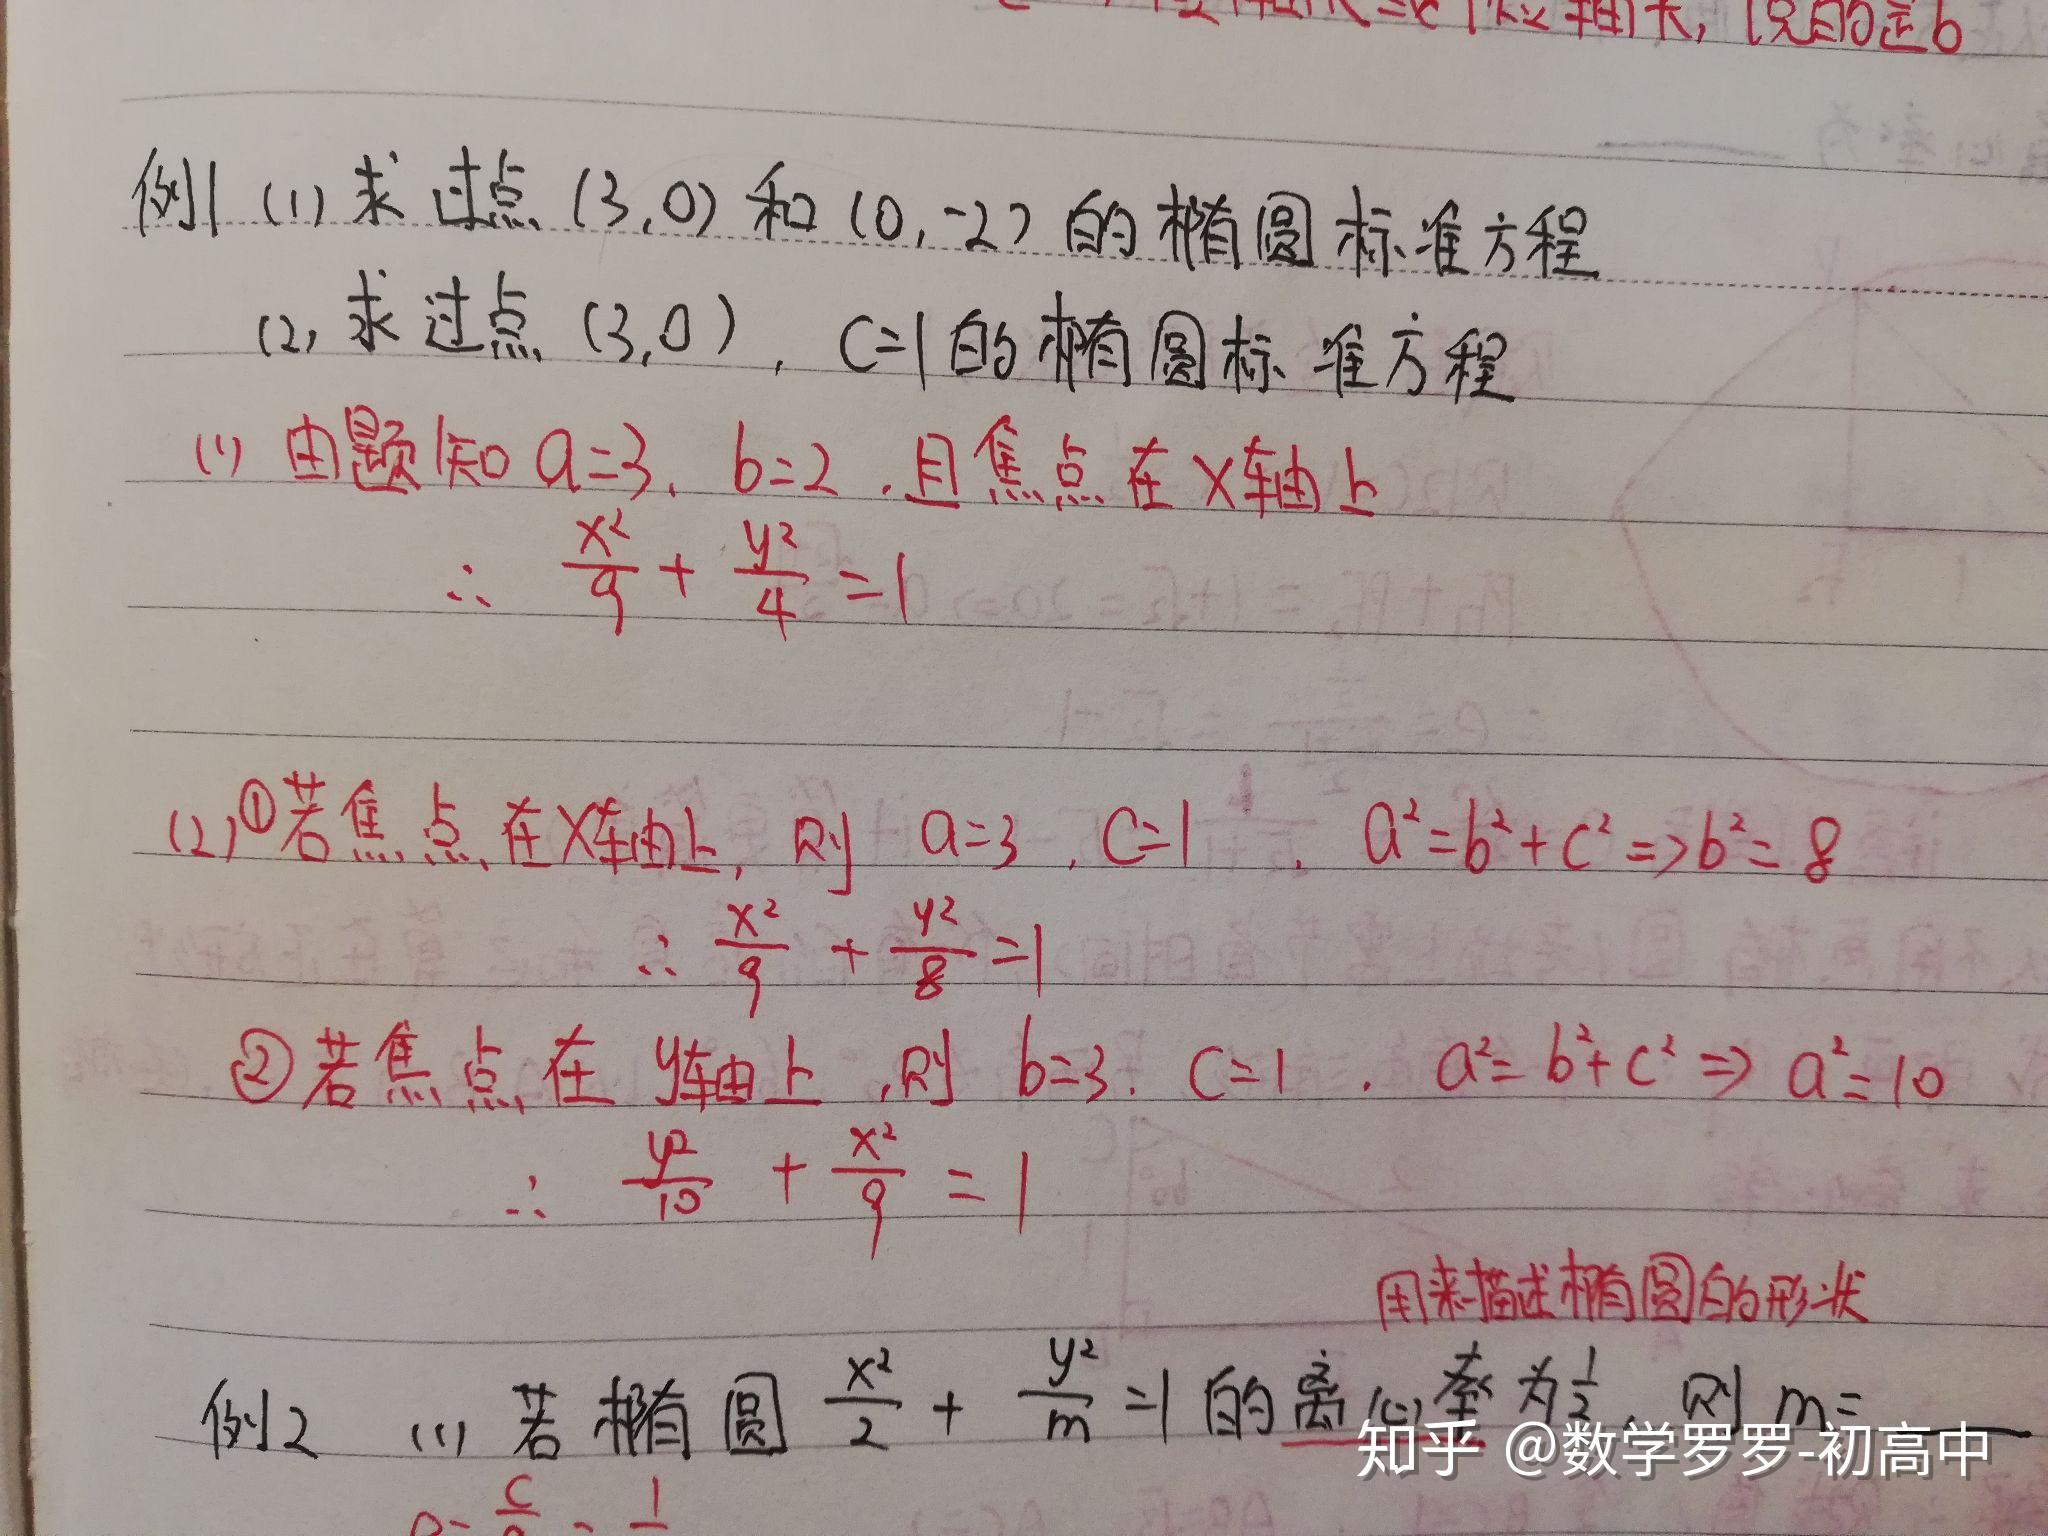 轴长, 说的是b
例1 (1) 求过点 (3,0) 和 (0,-2) 的椭圆标准方程
(2) 求过点 (3,0), c=1的椭圆标准方程
(1) 由题知 a=3, b=2, 且焦点在x轴上
∴ x²/9 + y²/4 = 1
(2) ①若焦点在x轴上, 则 a=3, c=1, a²=b²+c² => b²=8
∴ x²/9 + y²/8 = 1
②若焦点在 y轴上, 则 b=3, c=1, a²=b²+c² => a²=10
∴ y²/10 + x²/9 = 1
用来描述椭圆的形状
例2 (1) 若椭圆 x²/2 + y²/m = 1 的离心率为1/2, 则 m=____
知乎 @数学罗罗-初高中